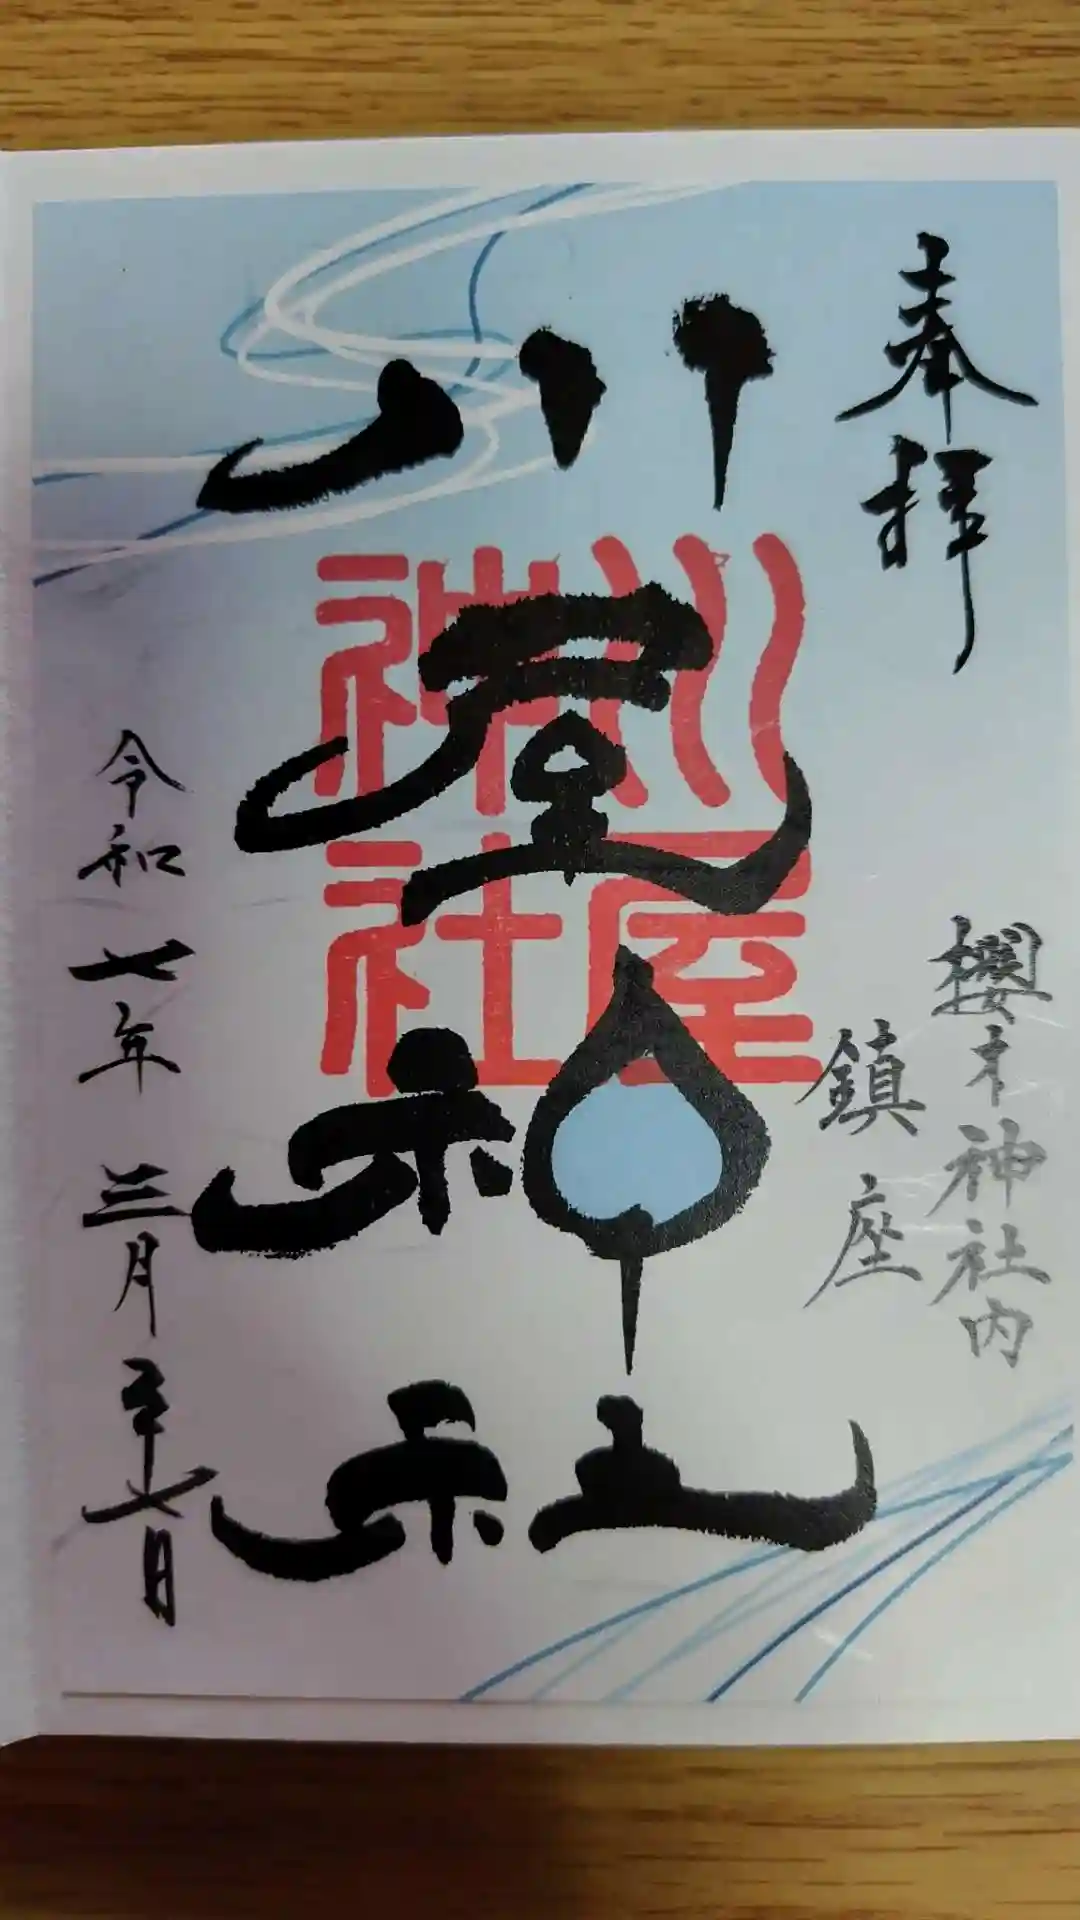 奉拝
櫻木神社内
鎮座
川屋神社
川屋
神社
令和七年三月二十七日